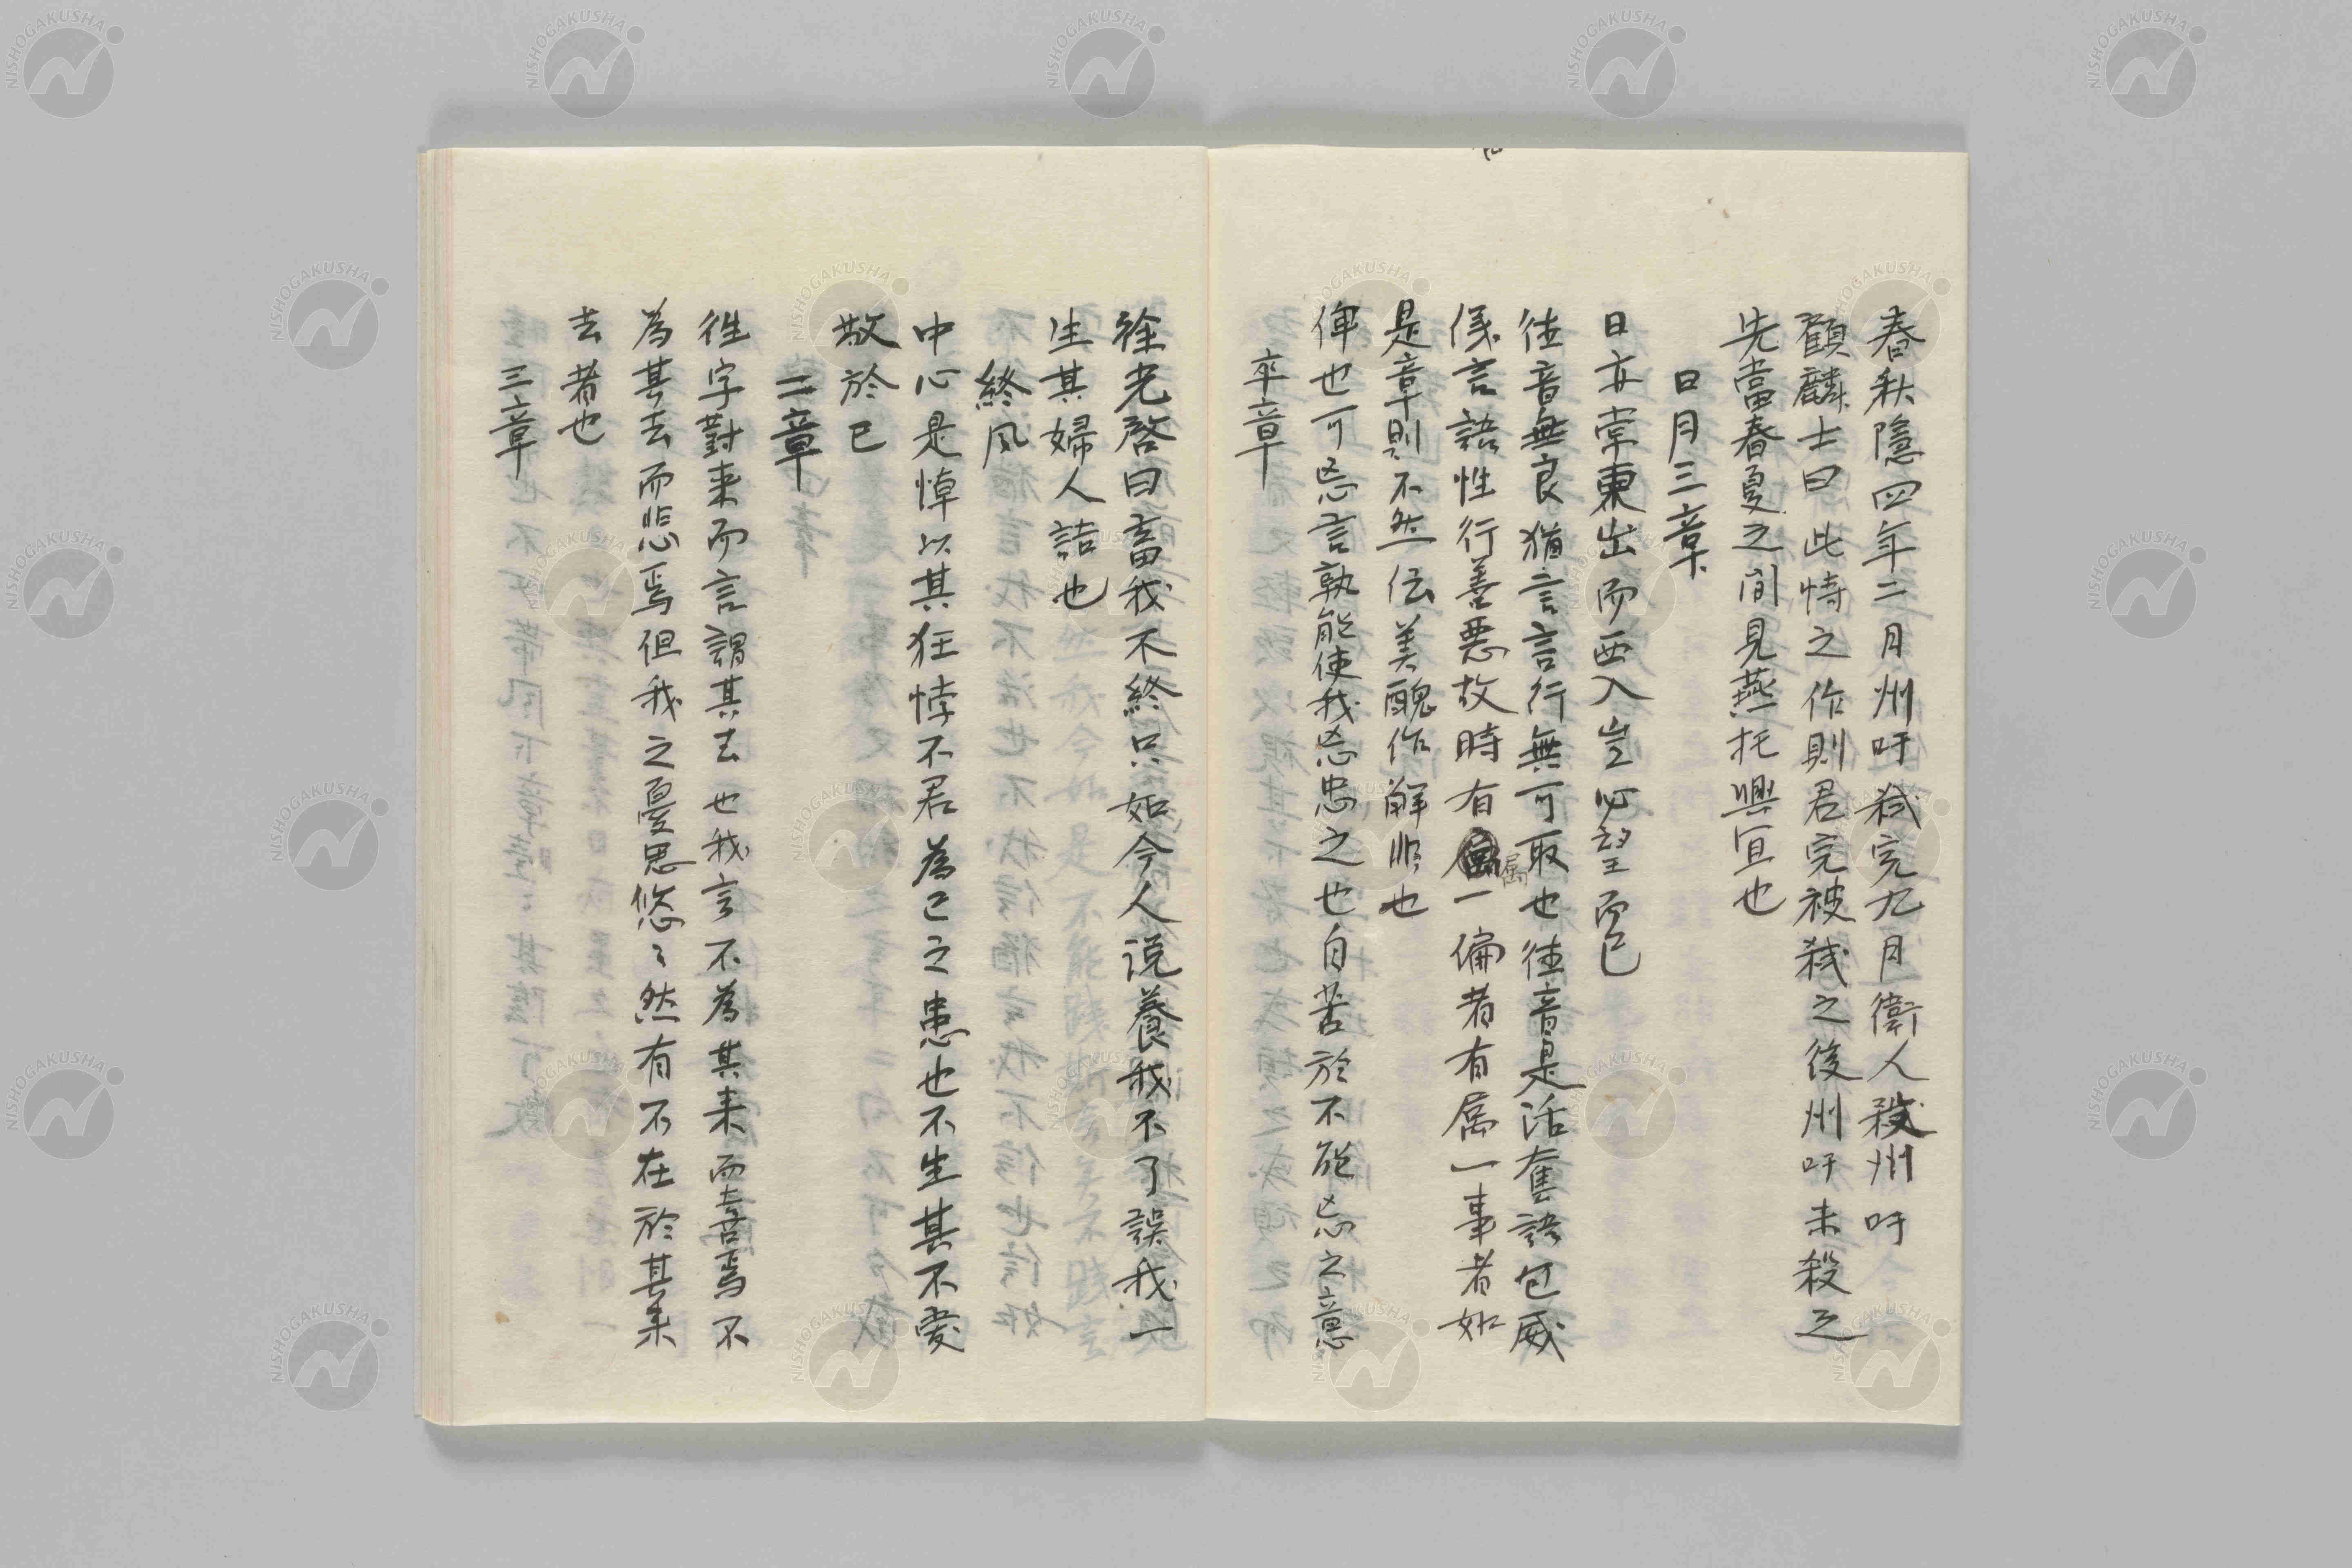 春秋隱四年二月州吁弑完九月衛人殺州吁
顧麟士曰此恃之作則君完被弑之後州吁未殺之
先當春夏之間見燕托興宜也
日月三章
日亦常東出而西入豈必望而已
徳音無良猶言言行無可取也徳音是活套語包威
儀言語性行善惡故時有属一偏者有属一事者如
是章則不然伝美醜作解非也
俾也可忘言孰能使我忘忠之也自苦於不能忘之意
卒章
徐光啓曰畜我不終只如今人説養我不了誤我一
生其婦人詰也
終風
中心是悼以其狂悖不君為己之患也不生其不愛
敬於己
二章
徃字對来而言謂其去也我言不為其来而喜焉不
為其去而悲焉但我之憂思悠〻然有不在於其来
去者也
三章
NISHOGAKUSHA